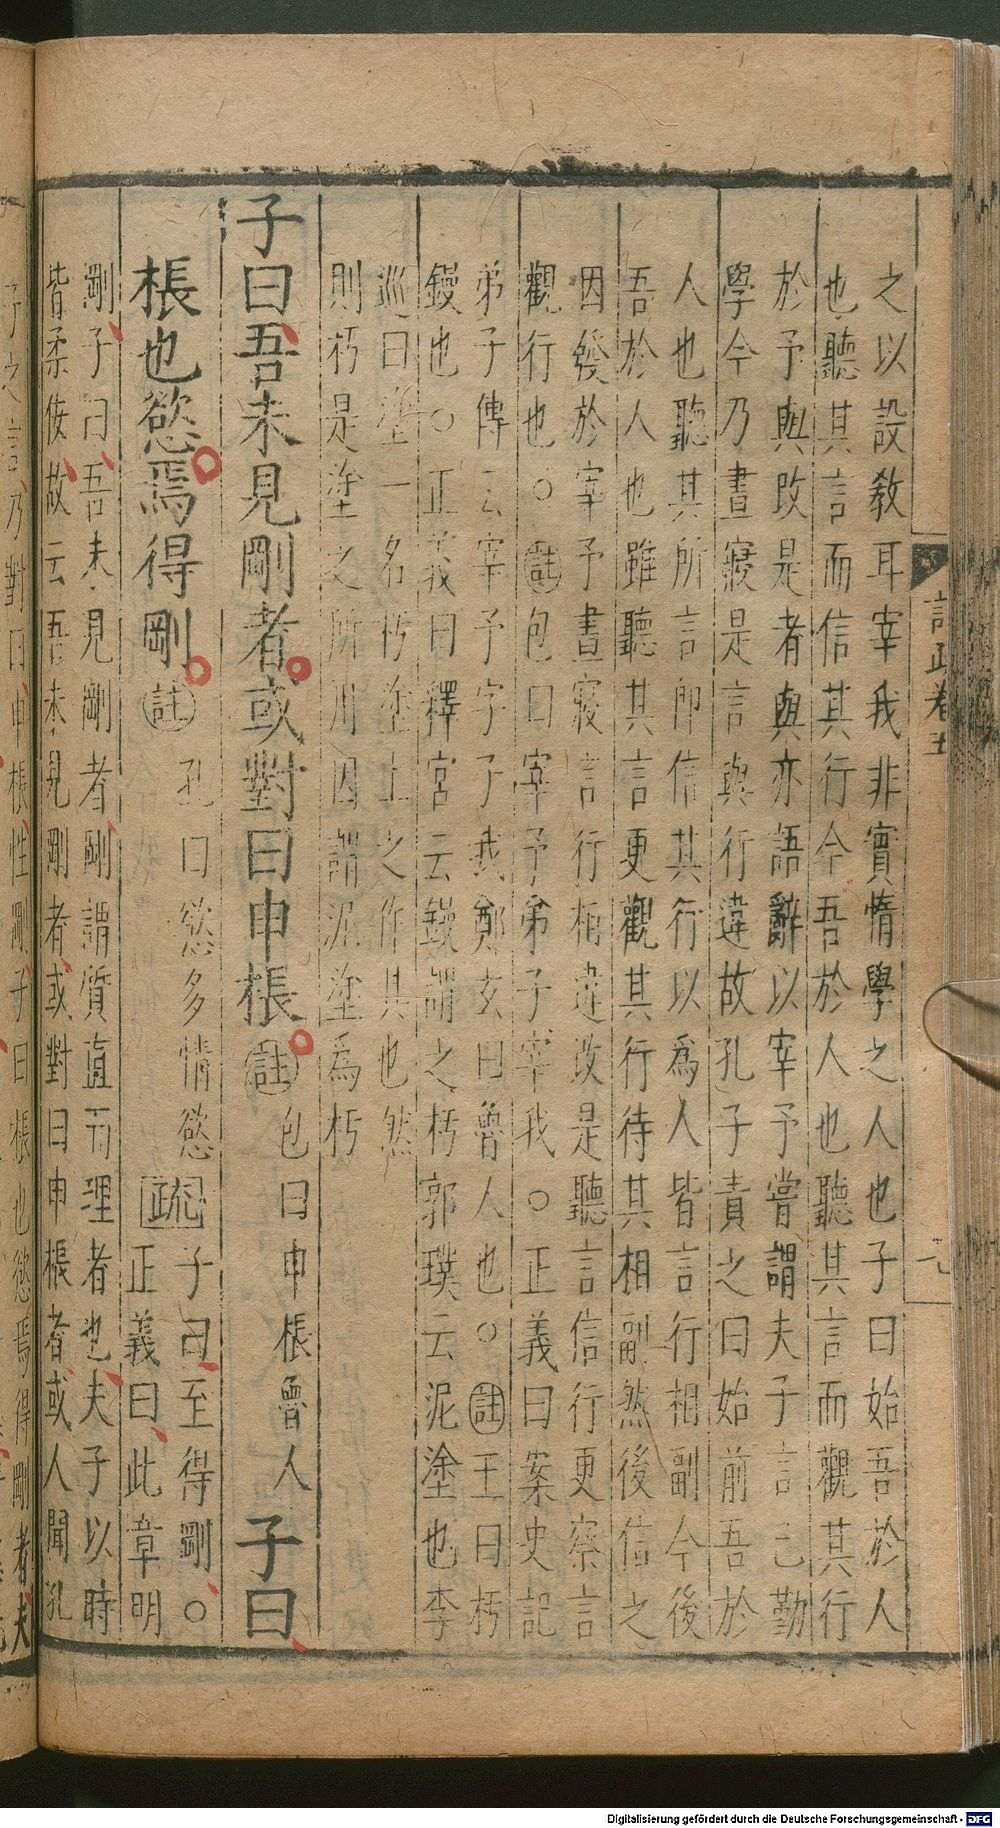 之以設教耳宰我非實惰學之人也子曰始吾於人
也聽其言而信其行今吾於人也聽其言而觀其行
於予與改是者與亦語辭以宰予嘗謂夫子言己勤
學今乃晝寢是言與行違故孔子責之曰始前吾於
人也聽其所言即信其行以為人皆言行相副今後
吾於人也雖聽其言更觀其行待其相副然後信之
因發於宰予晝寢言行相違改是聽言信行更察言
觀行也○註包曰宰予弟子宰我○正義曰案史記
弟子傳云宰予字子我鄭玄曰魯人也○註王曰杇
鏝也○正義曰釋宮云鏝謂之杇郭璞云泥塗也李
巡曰塗一名杇塗土之作具也然
則杇是塗之所用因謂泥塗為杇
子曰吾未見剛者或對曰申棖註包曰申棖魯人子曰
棖也慾焉得剛註孔曰慾多情慾疏子曰至得剛○
正義曰此章明
剛子曰吾未見剛者剛謂質直而理者也夫子以時
皆柔佞故云吾未見剛者或對曰申棖者或人聞孔
子之言乃對曰申棖性剛子曰棖也慾焉得剛者夫
語疏卷五
九
Digitalisierung gefördert durch die Deutsche Forschungsgemeinschaft - DFG